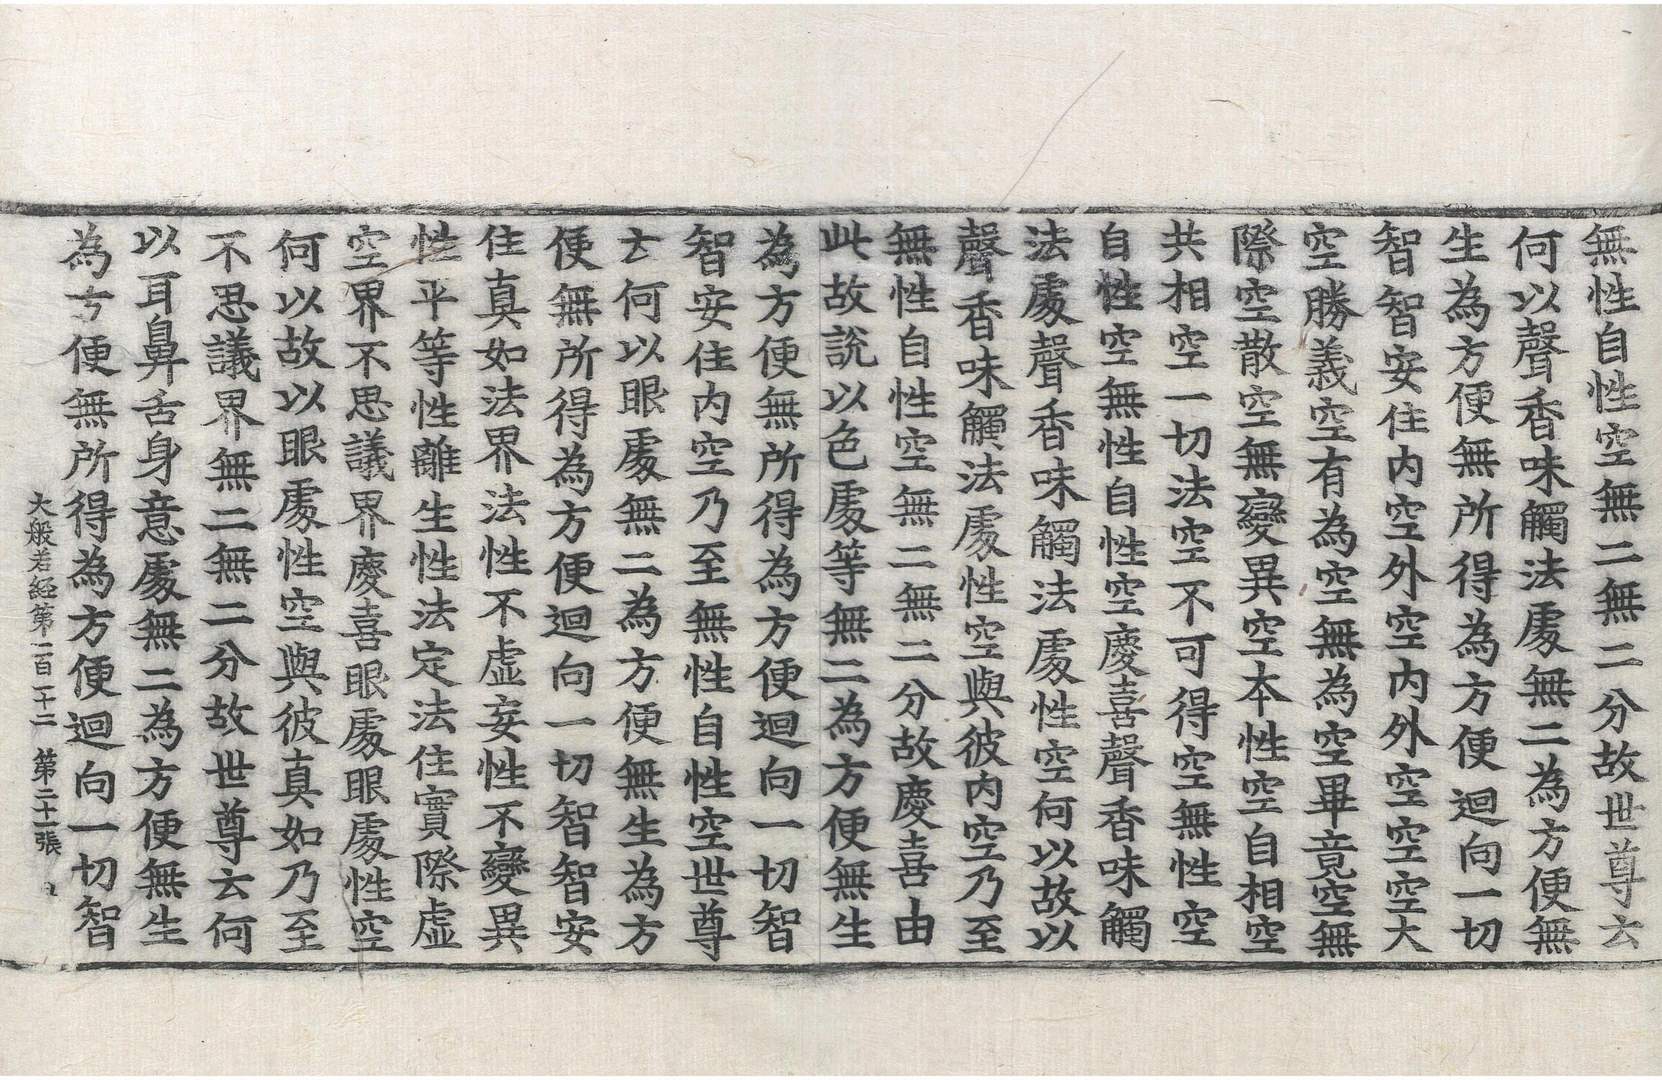 無性自性空無二無二分故世尊云
何以聲香味觸法處無二為方便無
生為方便無所得為方便迴向一切
智智安住內空外空內外空空空大
空勝義空有為空無為空畢竟空無
際空散空無變異空本性空自相空
共相空一切法空不可得空無性空
自性空無性自性空慶喜聲香味觸
法處聲香味觸法處性空何以故以
聲香味觸法處性空與彼內空乃至
無性自性空無二無二分故慶喜由
此故說以色處等無二為方便無生
為方便無所得為方便迴向一切智
智安住內空乃至無性自性空世尊
云何以眼處無二為方便無生為方
便無所得為方便迴向一切智智安
住真如法界法性不虛妄性不變異
性平等性離生性法定法住實際虛
空界不思議界慶喜眼處眼處性空
何以故以眼處性空與彼真如乃至
不思議界無二無二分故世尊云何
以耳鼻舌身意處無二為方便無生
為方便無所得為方便迴向一切智
大般若經第一百一十二 第二十一張